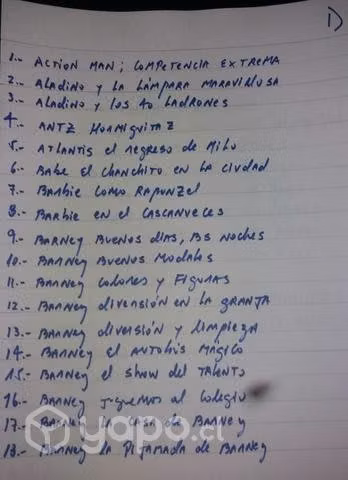 1)
1.- ACTION MAN; COMPETENCIA EXTREMA
2.- ALADINO Y LA LÁMPARA MARAVILLOSA
3.- ALADINO Y LOS 40 LADRONES
4.- ANTZ HORMIGUITAZ
5.- ATLANTIS EL REGRESO DE MILO
6.- BABE EL CHANCHITO EN LA CIUDAD
7.- BARBIE COMO RAPUNZEL
8.- BARBIE EN EL CASCANUECES
9.- BARNEY BUENOS DIAS, BS NOCHES
10.- BARNEY BUENOS MODALES
11.- BARNEY COLORES Y FIGURAS
12.- BARNEY DIVERSIÓN EN LA GRANJA
13.- BARNEY DIVERSIÓN Y LIMPIEZA
14.- BARNEY EL AUTOBÚS MÁGICO
15.- BARNEY EL SHOW DEL TALENTO
16.- BARNEY JUGUEMOS AL COLEGIO
17.- BARNEY LA CASA DE BARNEY
18.- BARNEY LA PIJAMADA DE BARNEY
yapo.cl